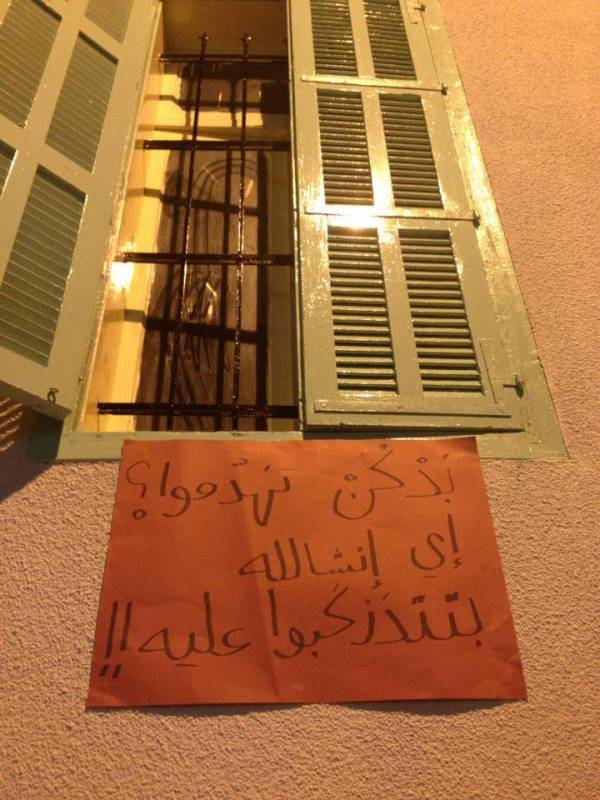 بَدْكُنْ تهَدّموا؟
إي إنشالله
بتتدَرْكَبوا عليه!!